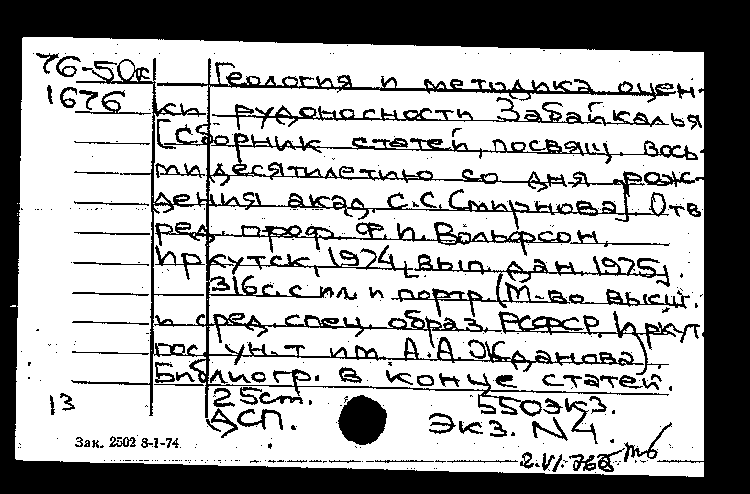 76-50к Геология и методика оцен-
1676 ки рудоносности Забайкалья
[Сборник статей, посвящ. вось-
мидесятилетию со дня рож-
дения акад. С.С. Смирнова]. Отв.
ред. проф. Ф.И. Вольфсон.
Иркутск, 1974, [вып. дан. 1975].
316с. с ил. и портр. (М-во высш.
и сред. спец. образ. РСФСР. Иркут.
гос. ун-т им. А.А. Жданова)
Библиогр. в конце статей.
13 25см. 550экз.
АСП. Экз. N4.
Зак. 2502 8-1-74
2.VI.76